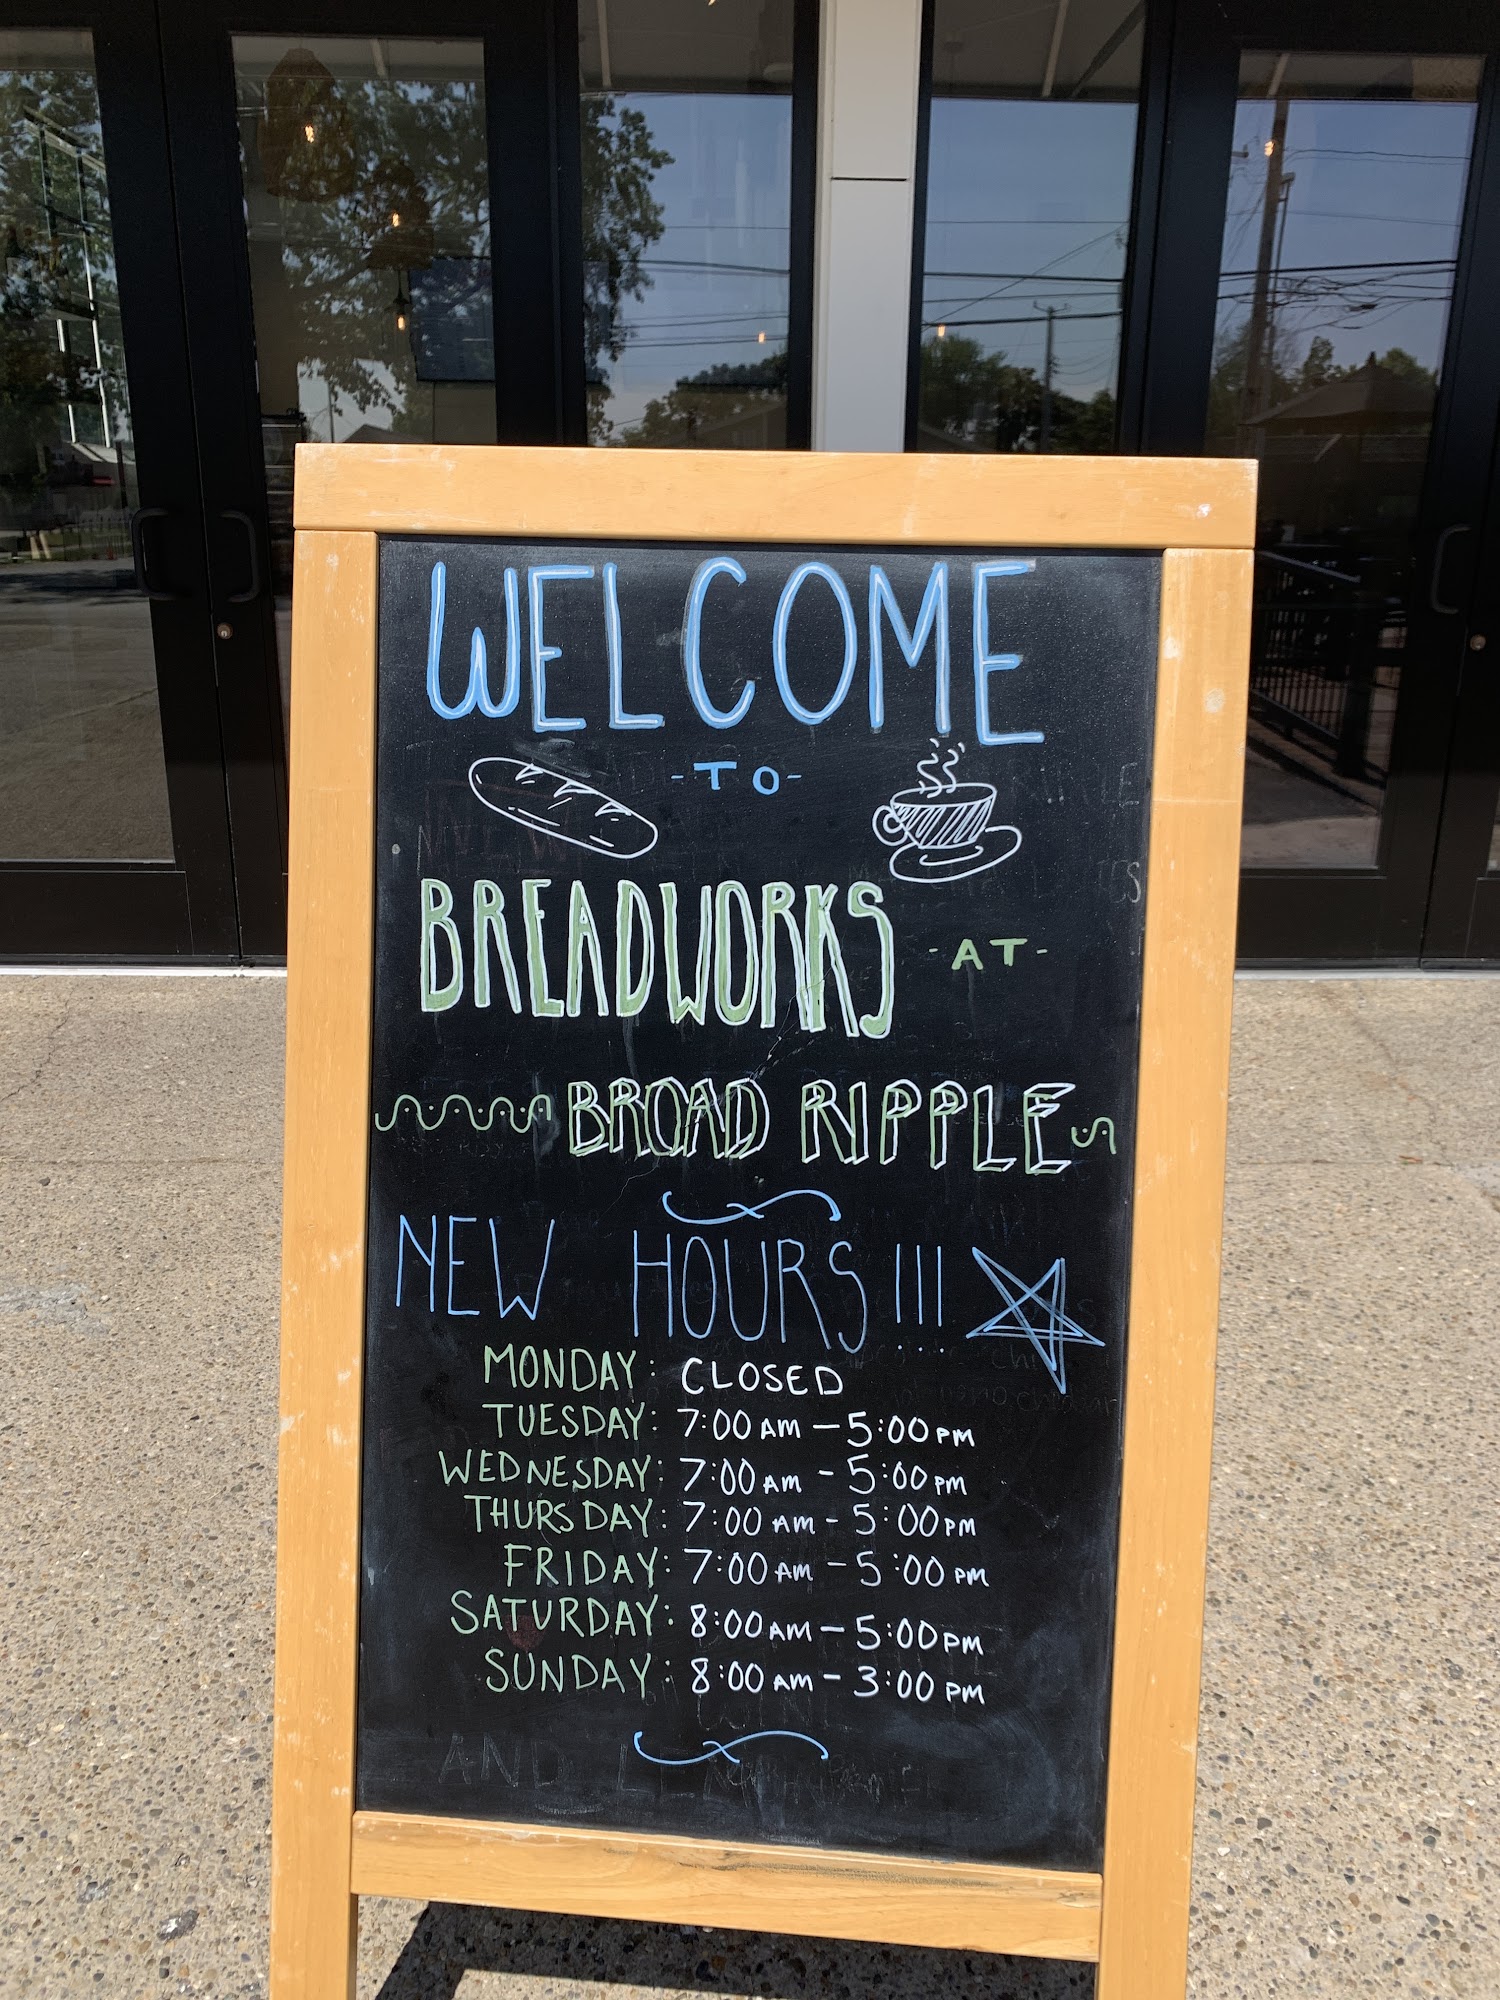 WELCOME
-TO-
BREADWORKS -AT-
BROAD RIPPLE
NEW HOURS!!!
MONDAY: CLOSED
TUESDAY: 7:00 AM - 5:00 PM
WEDNESDAY: 7:00 AM - 5:00 PM
THURSDAY: 7:00 AM - 5:00 PM
FRIDAY: 7:00 AM - 5:00 PM
SATURDAY: 8:00 AM - 5:00 PM
SUNDAY: 8:00 AM - 3:00 PM